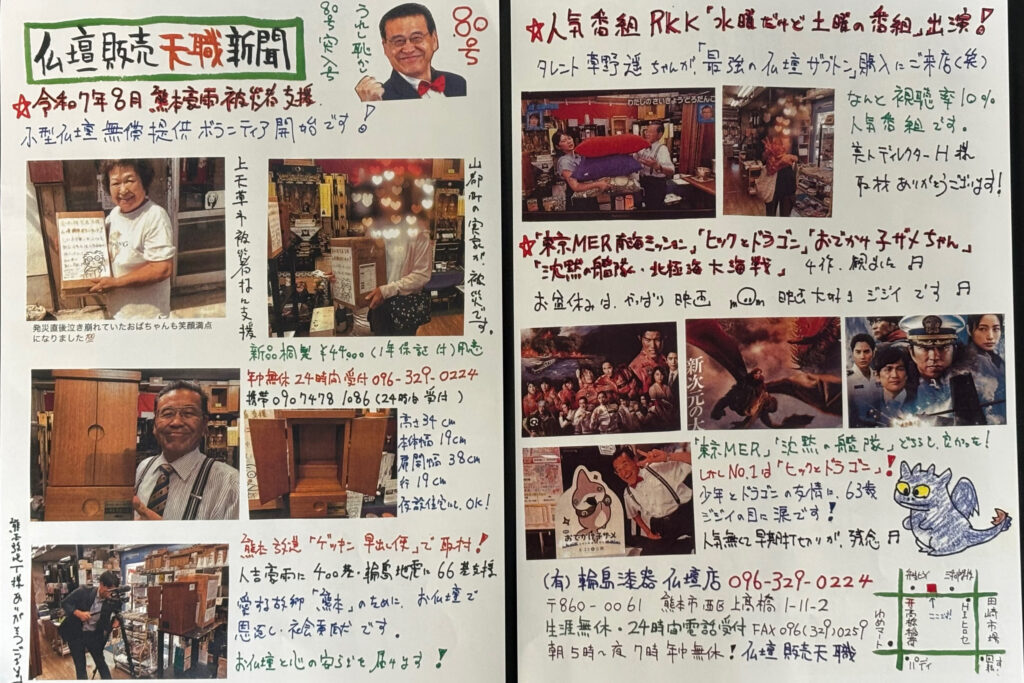 仏壇販売天職新聞
うれし恥かし
80号突入号
80号
☆令和7年8月 熊本豪雨被災者支援
小型仏壇無償提供ボランティア開始です!
上天草市被災者様に支援
山都町の実家が、被災です。
発災直後泣き崩れていたおばちゃんも笑顔満点
になりました
新品桐製 ¥44,000(1年保証付)用意
年中無休24時間受付 096-329-0224
携帯 090 7478 1086(24時間受付)
高さ34cm
本体幅19cm
扉開幅38cm
行19cm
仮設住宅にも、OK!
熊本放送「ゲツキン早出し便」で取材!
人吉豪雨に400基・輪島地震に66基支援
愛する故郷「熊本」のために、お仏壇で
恩返し・社会貢献です。
お仏壇で心の安らぎを届けます!
☆人気番組RKK「水曜だけど土曜の番組」出演!
タレント草野遥ちゃんが、「最強の仏壇ザブトン」購入にご来店(笑)
わたしのさいきょうとろだんご
なんと視聴率10%
人気番組です。
美人ディレクターH様
取材ありがとうございます!
☆「東京MER南海ミッション」「ヒックとドラゴン」「おでかけ子ザメちゃん」
「沈黙の艦隊・北極海大海戦」 4作、観ました♬
お盆休みは、やっぱり映画 映画大好きジジイです♬
新次元の
おでかけ子ザメ
「東京MER」「沈黙の艦隊」どちらも、良かった!
しかしNo.1は「ヒックとドラゴン」!
少年とドラゴンの友情に、63歳
ジジイの目に涙です!
人気無くて早期打切りが、残念♬
(有)輪島漆器仏壇店 096-329-0224
〒860-0061 熊本市西区上高橋1-11-2
生涯無休・24時間電話受付 FAX 096(329)0259
朝5時〜夜7時年中無休!仏壇販売天職
ここだよ!
高橋稲荷
ゆめマート
田崎市場